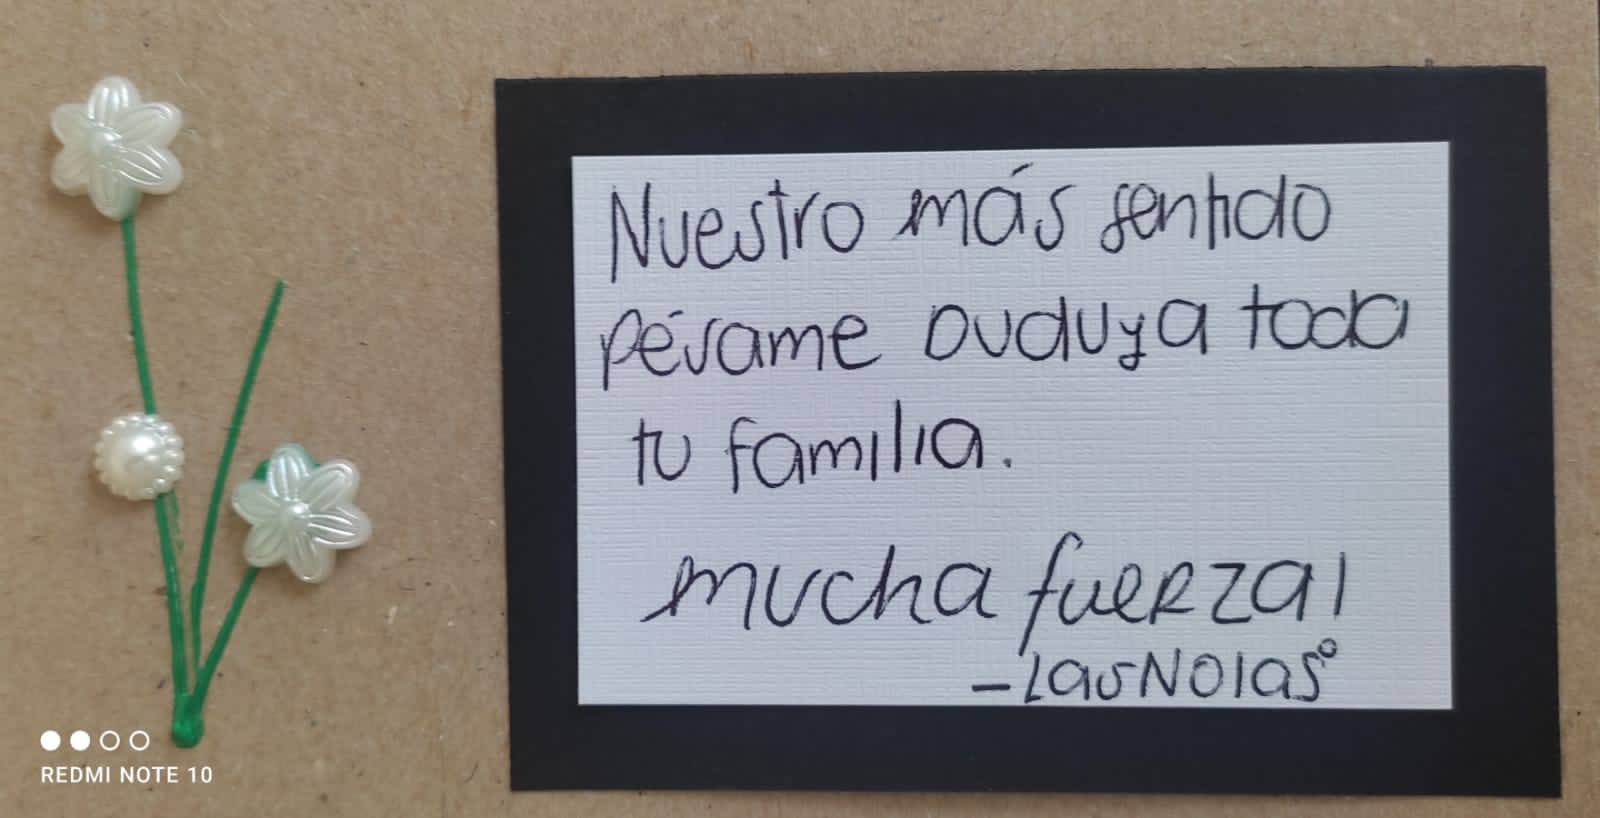 Nuestro más sentido
pésame Duduy a toda
tu familia.
mucha fuerza!
-Las Nolas°
REDMI NOTE 10